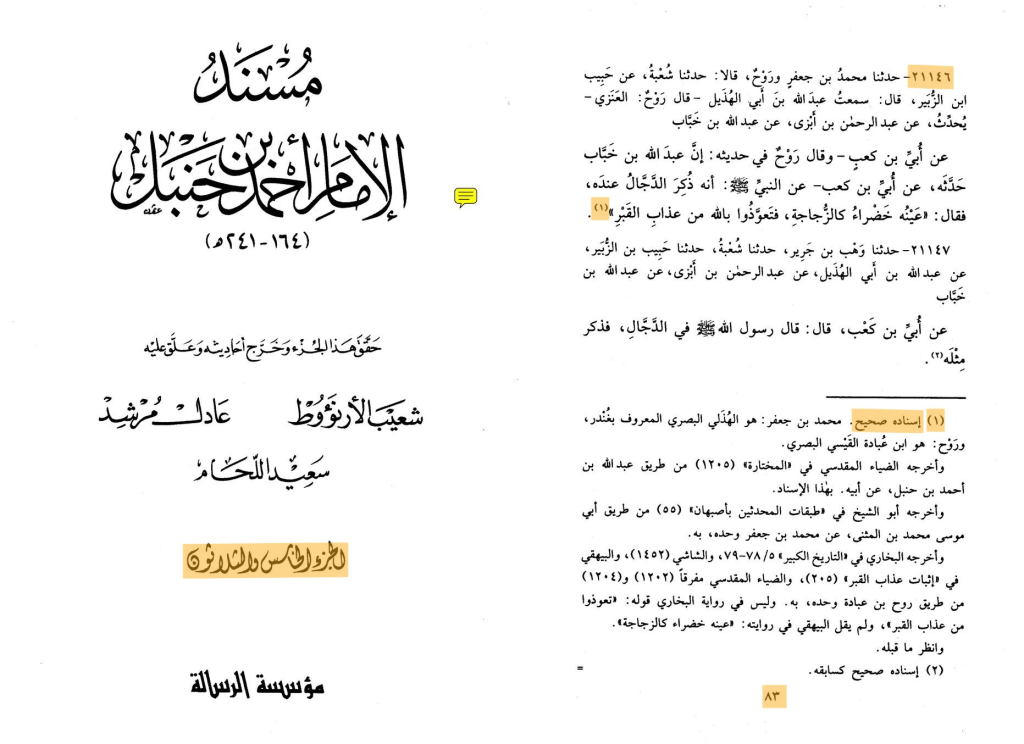 مُسْنَدُ
الإمَامِ أحْمَد بن حَنْبَل
(١٦٤-٢٤١هـ)
حَقَّقَ هَذا الجُزْء وَخَرَّج أحَاديثه وَعَلَّق عَليْه
شعَيبْ الأرنؤوط عَادل مُرشِد
سَعِيْد اللّحَام
الجزء الخامس والثلاثون
مؤسسة الرسالة
٢١١٤٦- حدثنا محمدُ بن جعفرٍ ورَوْحٌ، قالا: حدثنا شُعْبةُ، عن حَبِيب
ابن الزُّبَير، قال: سمعتُ عبدَالله بنَ أَبي الهُذَيل -قال رَوْحٌ: العَنَزي-
يُحدِّثُ، عن عبد الرحمٰن بن أَبْزى، عن عبدالله بن خَبَّاب
عن أُبيِّ بن كعبٍ -وقال رَوْحٌ في حديثه: إنَّ عبدَ الله بن خَبَّاب
حَدَّثَه، عن أُبيِّ بن كعب- عن النبيِّ ﷺ: أنه ذُكِرَ الدَّجَّالُ عنده،
فقال: «عَيْنُه خَضْراءُ كالزُّجاجةِ، فتَعوَّذُوا بالله من عذابِ القَبْرِ»(١).
٢١١٤٧- حدثنا وَهْب بن جَرِير، حدثنا شُعْبةُ، حدثنا حَبِيب بن الزُّبَير،
عن عبدالله بن أبي الهُذَيل، عن عبدالرحمٰن بن أَبْزى، عن عبدالله بن
خَبَّاب
عن أُبيِّ بن كَعْب، قال: قال رسول الله ﷺ في الدَّجَّالِ، فذكر
مِثْلَه(٢).
(١) إسناده صحيح. محمد بن جعفر: هو الهُذَلي البصري المعروف بغُنْدر،
ورَوْح: هو ابن عُبادة القَيْسي البصري.
وأخرجه الضياء المقدسي في «المختارة» (١٢٠٥) من طريق عبدالله بن
أحمد بن حنبل، عن أبيه. بهٰذا الإسناد.
وأخرجه أبو الشيخ في «طبقات المحدثين بأصبهان» (٥٥) من طريق أبي
موسى محمد بن المثنى، عن محمد بن جعفر وحده، به.
وأخرجه البخاري في «التاريخ الكبير» ٧٨/٥-٧٩، والشاشي (١٤٥٢)، والبيهقي
في «إثبات عذاب القبر» (٢٠٥)، والضياء المقدسي مفرقاً (١٢٠٢) و(١٢٠٤)
من طريق روح بن عبادة وحده، به. وليس في رواية البخاري قوله: «تعوذوا
من عذاب القبر»، ولم يقل البيهقي في روايته: «عينه خضراء كالزجاجة».
وانظر ما قبله.
(٢) إسناده صحيح كسابقه.
=
٨٣